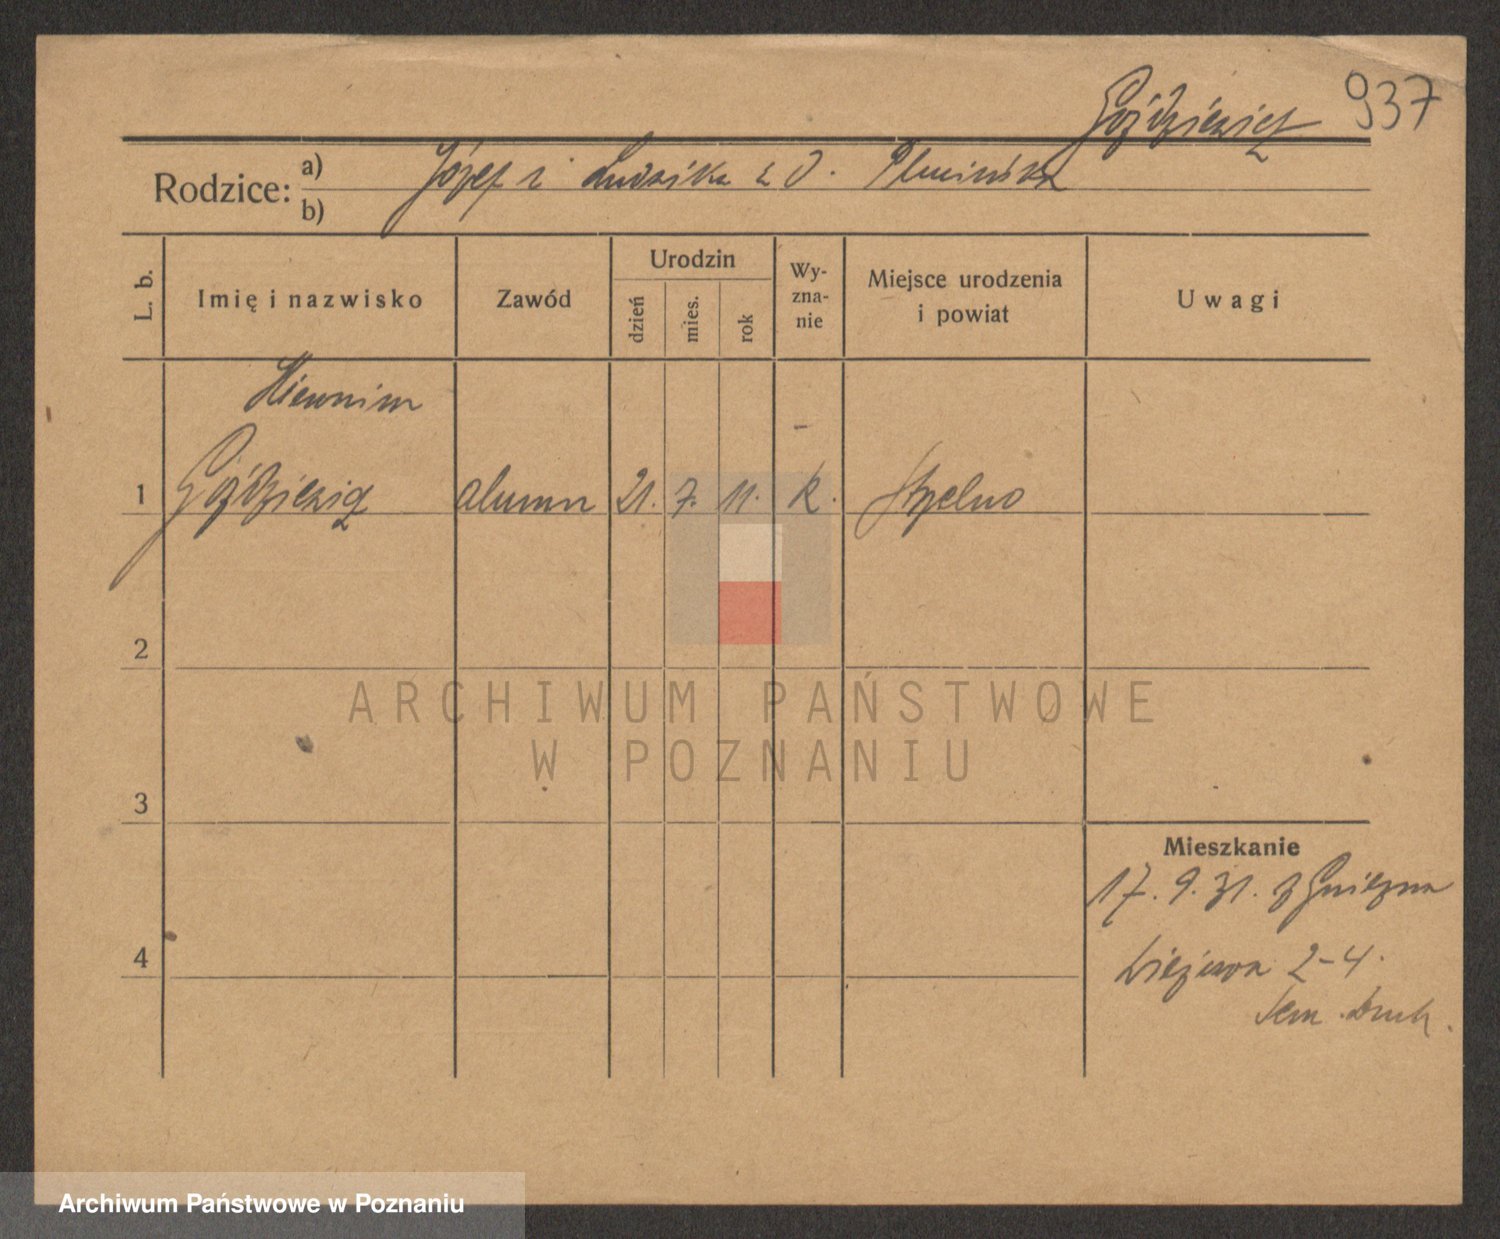 Goździewicz 937
Rodzice: a) Józef i Ludwika z d. Plucińska
b)
L. b.
Imię i nazwisko
Zawód
Urodzin
dzień
mies.
rok
Wy-
zna-
nie
Miejsce urodzenia
i powiat
Uwagi
1 Goździewicz alumn 21. 7. 11. k. Strzelno
2
ARCHIWUM PAŃSTWOWE
W POZNANIU
3
Mieszkanie
17. 9. 31. z Gniezna
4
2-4.
Sem. Duch.
Archiwum Państwowe w Poznaniu